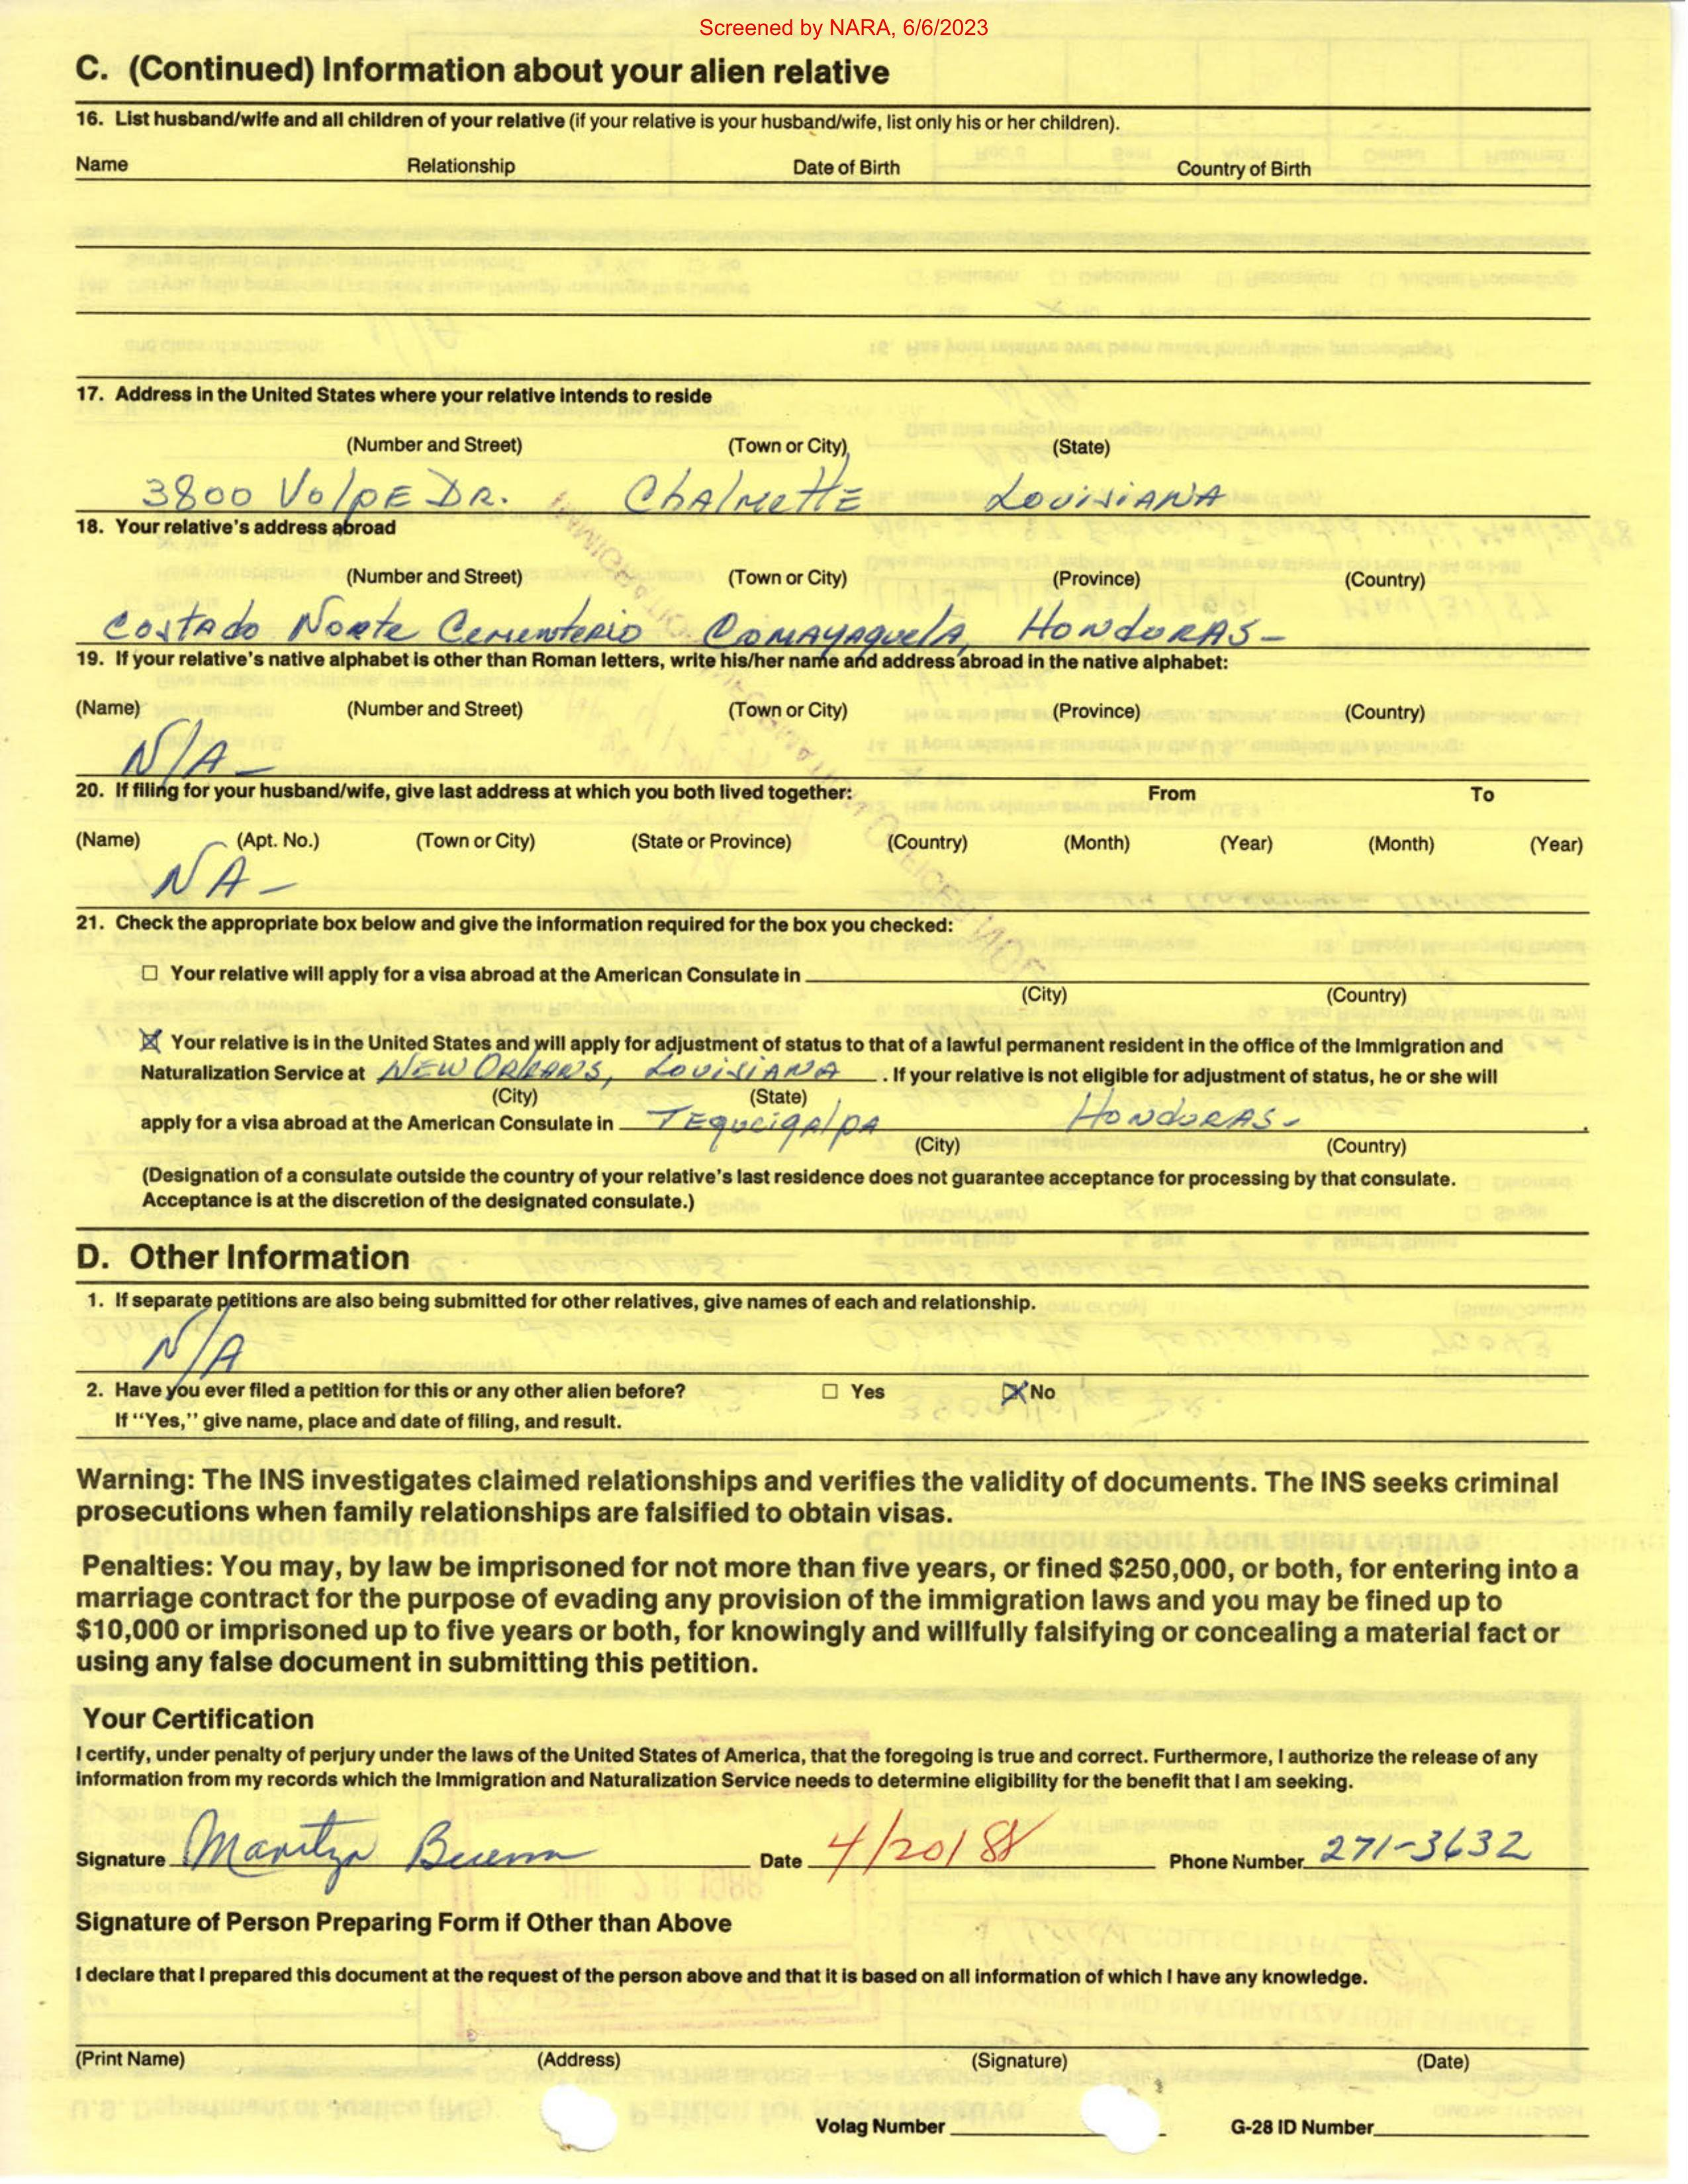 Screened by NARA, 6/6/2023
C. (Continued) Information about your alien relative
16. List husband/wife and all children of your relative (if your relative is your husband/wife, list only his or her children).
Name Relationship Date of Birth Country of Birth
17. Address in the United States where your relative intends to reside
(Number and Street) (Town or City) (State)
3800 Volpe Dr. Chalmette Louisiana
18. Your relative's address abroad
(Number and Street) (Town or City) (Province) (Country)
Costado Norte Cementerio Comayaquela, Honduras-
19. If your relative's native alphabet is other than Roman letters, write his/her name and address abroad in the native alphabet:
(Name) (Number and Street) (Town or City) (Province) (Country)
N/A-
20. If filing for your husband/wife, give last address at which you both lived together: From To
(Name) (Apt. No.) (Town or City) (State or Province) (Country) (Month) (Year) (Month) (Year)
NA-
21. Check the appropriate box below and give the information required for the box you checked:
☐ Your relative will apply for a visa abroad at the American Consulate in
(City) (Country)
☒ Your relative is in the United States and will apply for adjustment of status to that of a lawful permanent resident in the office of the Immigration and
Naturalization Service at New Orleans, Louisiana. If your relative is not eligible for adjustment of status, he or she will
(City) (State)
apply for a visa abroad at the American Consulate in Tequcigalpa Honduras-.
(City) (Country)
(Designation of a consulate outside the country of your relative's last residence does not guarantee acceptance for processing by that consulate.
Acceptance is at the discretion of the designated consulate.)
D. Other Information
1. If separate petitions are also being submitted for other relatives, give names of each and relationship.
N/A
2. Have you ever filed a petition for this or any other alien before? ☐ Yes ☒ No
If "Yes," give name, place and date of filing, and result.
Warning: The INS investigates claimed relationships and verifies the validity of documents. The INS seeks criminal
prosecutions when family relationships are falsified to obtain visas.
Penalties: You may, by law be imprisoned for not more than five years, or fined $250,000, or both, for entering into a
marriage contract for the purpose of evading any provision of the immigration laws and you may be fined up to
$10,000 or imprisoned up to five years or both, for knowingly and willfully falsifying or concealing a material fact or
using any false document in submitting this petition.
Your Certification
I certify, under penalty of perjury under the laws of the United States of America, that the foregoing is true and correct. Furthermore, I authorize the release of any
information from my records which the Immigration and Naturalization Service needs to determine eligibility for the benefit that I am seeking.
Signature Maritza Bueno Date 4/20/88 Phone Number 271-3632
Signature of Person Preparing Form if Other than Above
I declare that I prepared this document at the request of the person above and that it is based on all information of which I have any knowledge.
(Print Name) (Address) (Signature) (Date)
Volag Number G-28 ID Number